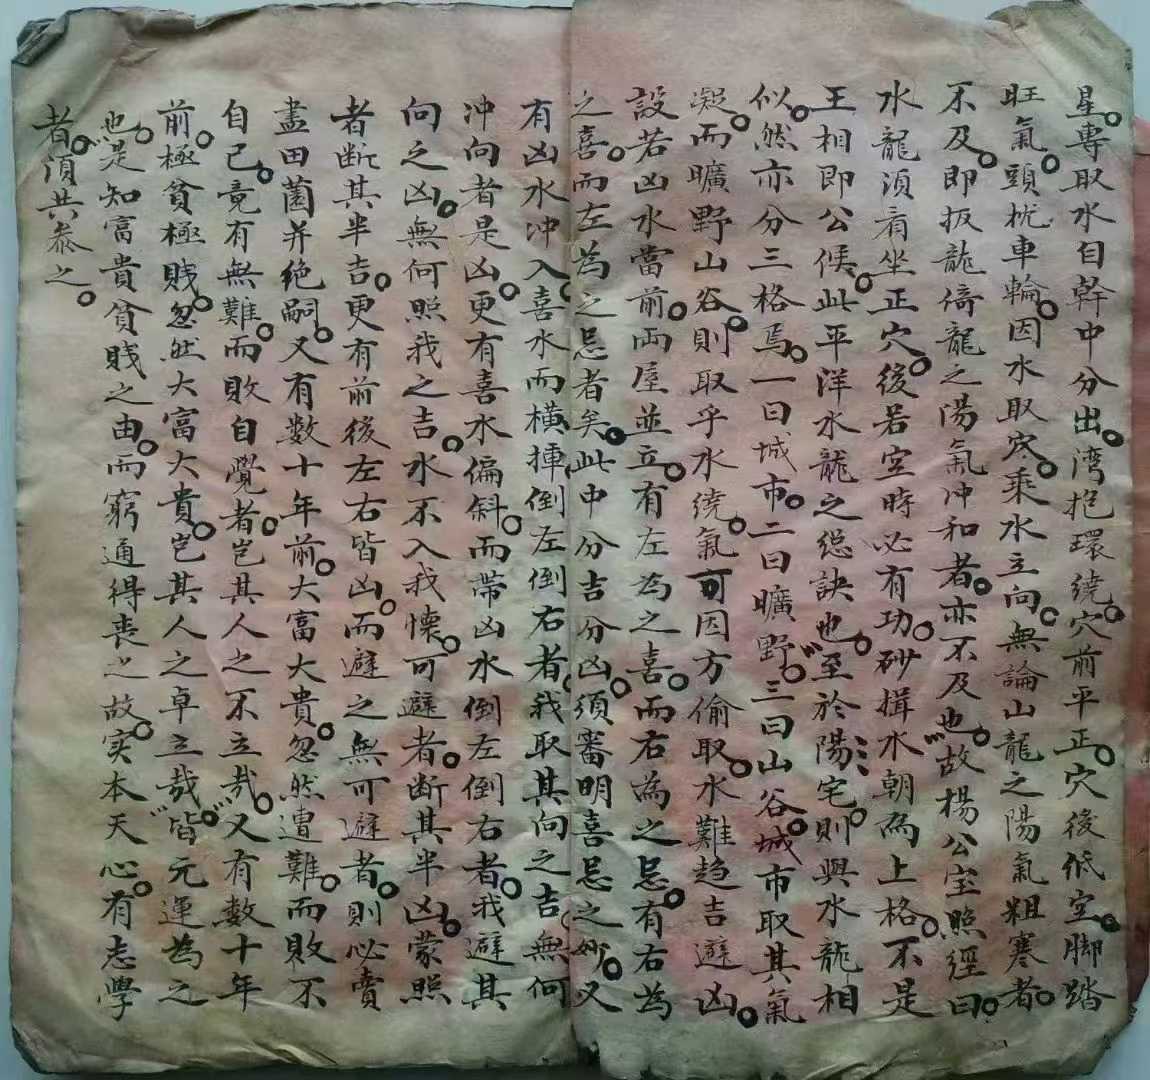 星。專取水自幹中分出。湾抱環繞。穴前平正。穴後低空。脚踏
旺氣。頭枕車輪。因水取穴。乘水立向。無論山龍之陽氣粗寒者。
不及。即扳龍倚龍之陽氣冲和者。亦不及也。故楊公宝照經曰。
水龍湏看坐正穴。後若空時必有功。砂揖水朝為上格。不是
王相即公候。此平洋水龍之總訣也。至於陽宅。則與水龍相
似。然亦分三格焉。一曰城市。二曰曠野。三曰山谷。城市取其氣
凝。而曠野山谷。則取乎水繞氣。可因方偷取。水難趋吉避凶。
設若凶水當前。両屋並立。有左為之喜。而右為之忌。有右為
之喜。而左為之忌者矣。此中分吉分凶。须審明喜忌之妙。又
有凶水冲入。喜水而横揷倒左倒右者。我取其向之吉。無何
冲向者是凶。更有喜水偏斜。而帶凶水倒左倒右者。我避其
向之凶。無何照我之吉。水不入我懐。可避者。断其半凶。蒙照
者断其半吉。更有前後左右皆凶。而避之無可避者。則必賣
盡田園并绝嗣。又有数十年前。大富大貴。忽然遭難。而敗不
自已。竟有無難。而敗自覺者。岂其人之不立哉。又有数十年
前。極貧極賎。忽然大富大貴。岂其人之卓立哉。皆元運為之
也。是知富貴貧賎之由。而窮通得丧之故。实本天心。有志學
者。湏共叅之。